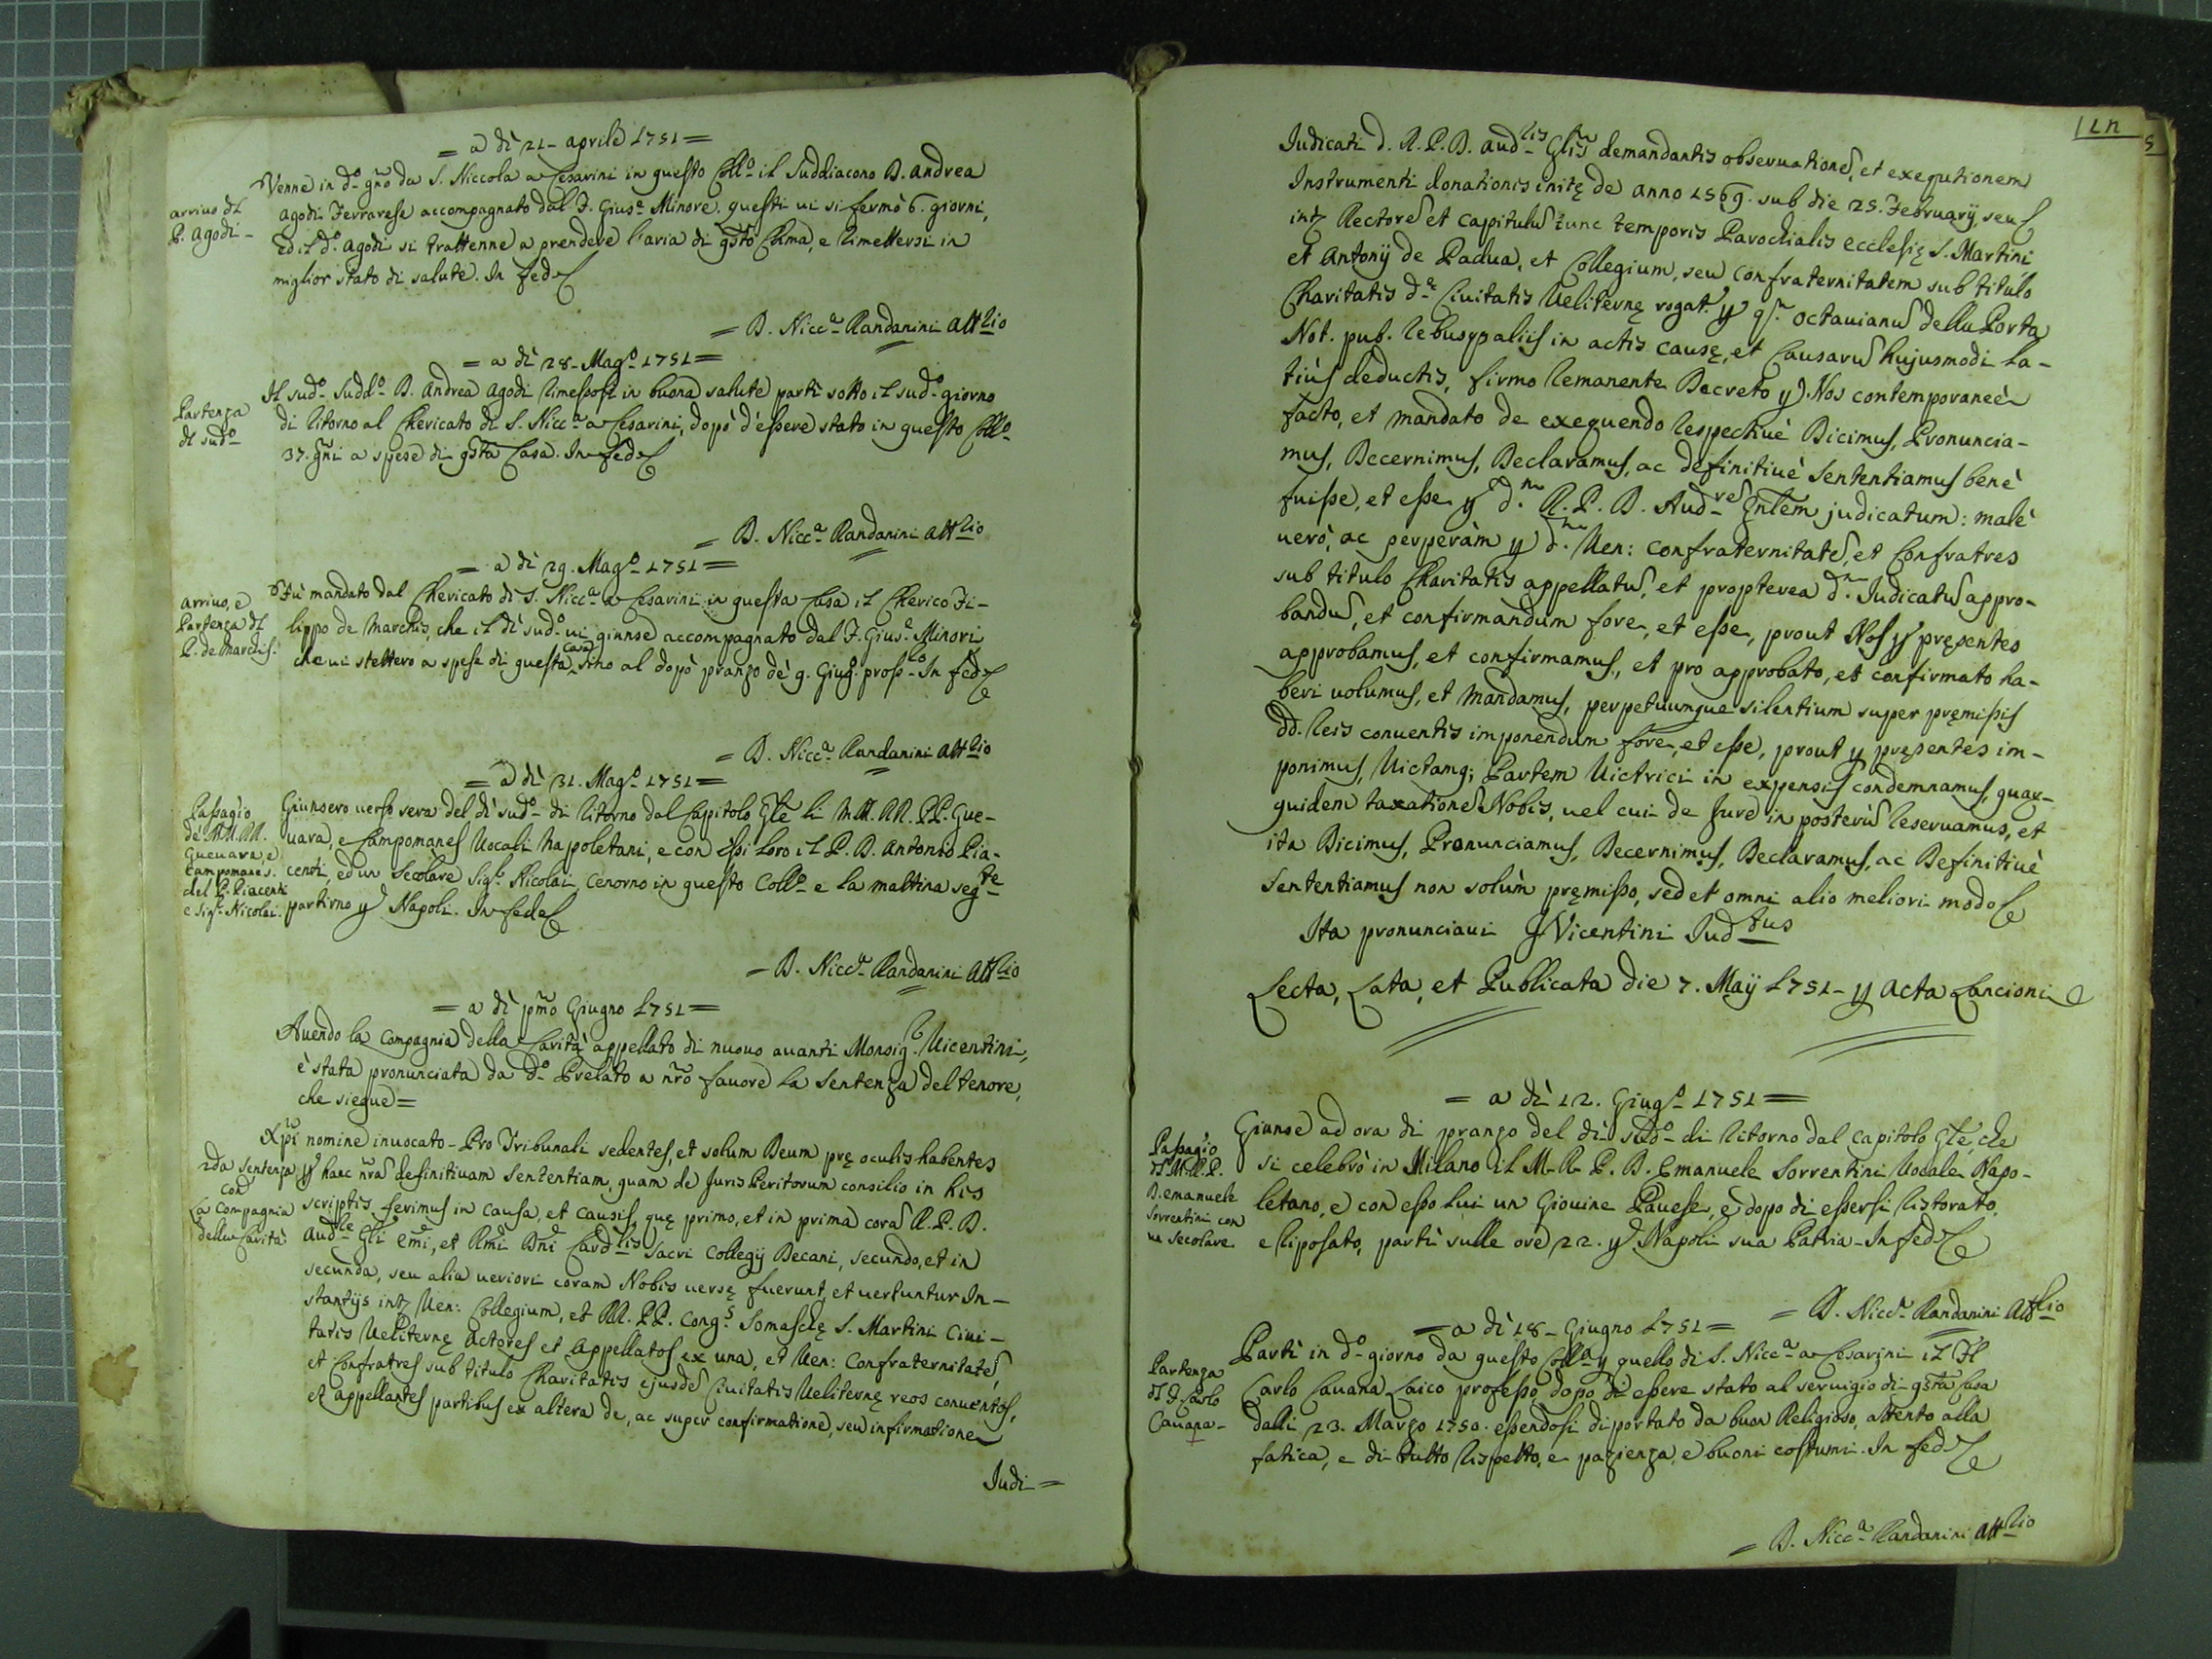 = a dì 21 - aprile 1751 =
Venne in d.º gño da S. Niccola a Cesarini in questo Coll.º il Suddiacono D. Andrea
arrivo del
P. Agodi -
Agodi Ferrarese accompagnato dal F. Gius.e Minore. questi vi si fermò 6. giorni,
ed il d.º Agodi si trattenne a prendere l'aria di gsto Clima, e rimettersi in
miglior stato di salute. In fede
= D. Nicc.a Randanini Att.rio
= a dì 28 - Mag.º 1751 =
Partenza
del sud.º
Il sud.º Sudd.º D. Andrea Agodi rimessosi in buona salute partì sotto il sud.º giorno
di ritorno al Chericato di S. Nicc.a a Cesarini, dopò d'essere stato in questo Coll.º
37. gñi a spese di gsta Casa. In fede
= D. Nicc.a Randanini Att.rio
= a dì 29. Mag.º 1751 =
arrivo, e
Partenza del
P. de Marchis.
Fù mandato dal Chericato di S. Nicc.a a Cesarini in questa Casa il Cherico Fi-
lippo de Marchis, che il dì sud.º vi giunse accompagnato dal F. Gius.e Minori,
che vi stettero a spese di questa Casa sino al dopò pranzo dè 9. Giug.º pross.º In fede
= D. Nicc.a Randanini Att.rio
= a dì 31. Mag.º 1751 =
Passagio
de' MM. RR.
Guevara, e
Campomanes.
del P. Piacenti
e Sig.r Nicolai.
Giunsero verso sera del dì sud.º di ritorno dal Capitolo Gle li MM. RR. PP. Gue-
vara, e Campomanes Vocali Napoletani, e con essi loro il P. D. Antonio Pia-
centi, ed un Secolare Sig.r Nicolai, cenorno in questo Coll.º e la mattina seg.te
partirno p Napoli. In fede
= D. Nicc.a Randanini Att.rio
= a dì pmo Giugno 1751 =
Avendo la Compagnia della Carità appellato di nuovo avanti Monsig.r Vicentini,
è stata pronunciata da d.º Prelato a nro favore la Sentenza del tenore,
che siegue =
2da Sentenza
con
la Compagnia
della Carità
Xpi nomine invocato - Pro Tribunali sedentes, et solum Deum prę oculis habentes
p hanc nra definitivam Sententiam, quam de Juris Peritorum consilio in his
scriptis ferimus in causa, et causis, quę primo, et in prima cora R. P. D.
Aud.re Gli Emi, et Rmi Dni Card.lis Sacri Collegij Decani, secundo, et in
secunda, seu alia veriori coram Nobis versę fuerunt, et vertuntur In-
stantijs int Ven: Collegium, et RR. PP. Cong.s Somaschę S. Martini Civi-
tatis Veliternę Actores et Appellatos ex una, et Ven: Confraternitate,
et Confratres sub titulo Charitatis ejusde Civitatis Veliternę reos conventos,
et appellantes partibus ex altera de, ac super confirmatione, seu infirmatione
Judi =
127
5
Judicati d. R. P. D. Aud.ris Glis demandantis observatione, et exequtionem
Instrumenti donationis initę de anno 1569. sub die 25. February, seu
int Rectore et Capitulu tunc temporis Parochialis Ecclesię S. Martini
et Antonij de Padua, et Collegium, seu Confraternitatem sub titulo
Charitatis d.ę Civitatis Veliternę rogat. p q.m Octavianu della Porta
Not. pub. rebusq aliis in actis causę, et Causaru hujusmodi la-
tiùs deductis, firmo remanente Decreto p Nos contemporaneè
facto, et mandato de exequendo respectivè Dicimus, Pronuncia-
mus, Decernimus, Declaramus, ac definitivè Sententiamus benè
fuisse, et esse p d.m R. P. D. Aud.re Gñlem judicatum: malè
verò, ac perperàm p d.m Ven: Confraternitate, et Confratres
sub titulo Charitatis appellatu, et propterea d.m Judicatu appro-
bandu, et confirmandum fore, et esse, prout Nos p pręsentes
approbamus, et confirmamus, et pro approbato, et confirmato ha-
beri volumus, et mandamus, perpetuumque silentium super pręmissis
dd. Reis conventis imponendum fore, et esse, prout p pręsentes im-
ponimus, Victamq; Partem Victrici in expensis condemnamus, quar-
quidem taxatione Nobis, vel cui de Jure in posterù reservamus, et
ita Dicimus, Pronunciamus, Decernimus, Declaramus, ac Definitivè
Sententiamus non solùm pręmisso, sed et omni alio meliori modo
Ita pronunciavi Vicentini Jud.tus
Lecta, Lata, et Publicata die 7. Maÿ 1751 - p Acta Lancioni
= a dì 12. Giug.º 1751 =
Passagio
del M. R. P.
D. Emanuele
Sorrentini con
un secolare
Giunse ad ora di pranzo del dì sud.º di ritorno dal Capitolo Gle, che
si celebrò in Milano il M. R. P. D. Emanuele Sorrentini Vocale Napo-
letano, e con esso lui un Giovine Pavese, e dopo di essersi ristorato,
e riposato, partì sulle ore 22. p Napoli sua Patria - In fede
= D. Nicc.a Randanini Att.rio
= a dì 18 - Giugno 1751 =
Partenza
del F. Carlo
Cavana -
Partì in d.º giorno da questo Coll.º p quello di S. Nicc.a a Cesarini il Fl
Carlo Cavana Laico professo, dopo di essere stato al servigio di gsta Casa
dalli 23. Marzo 1750. essendosi diportato da buon Religioso, attento alla
fatica, e di tutto rispetto, e pazienza, e buoni costumi. In fede
= D. Nicc.a Randanini Att.rio